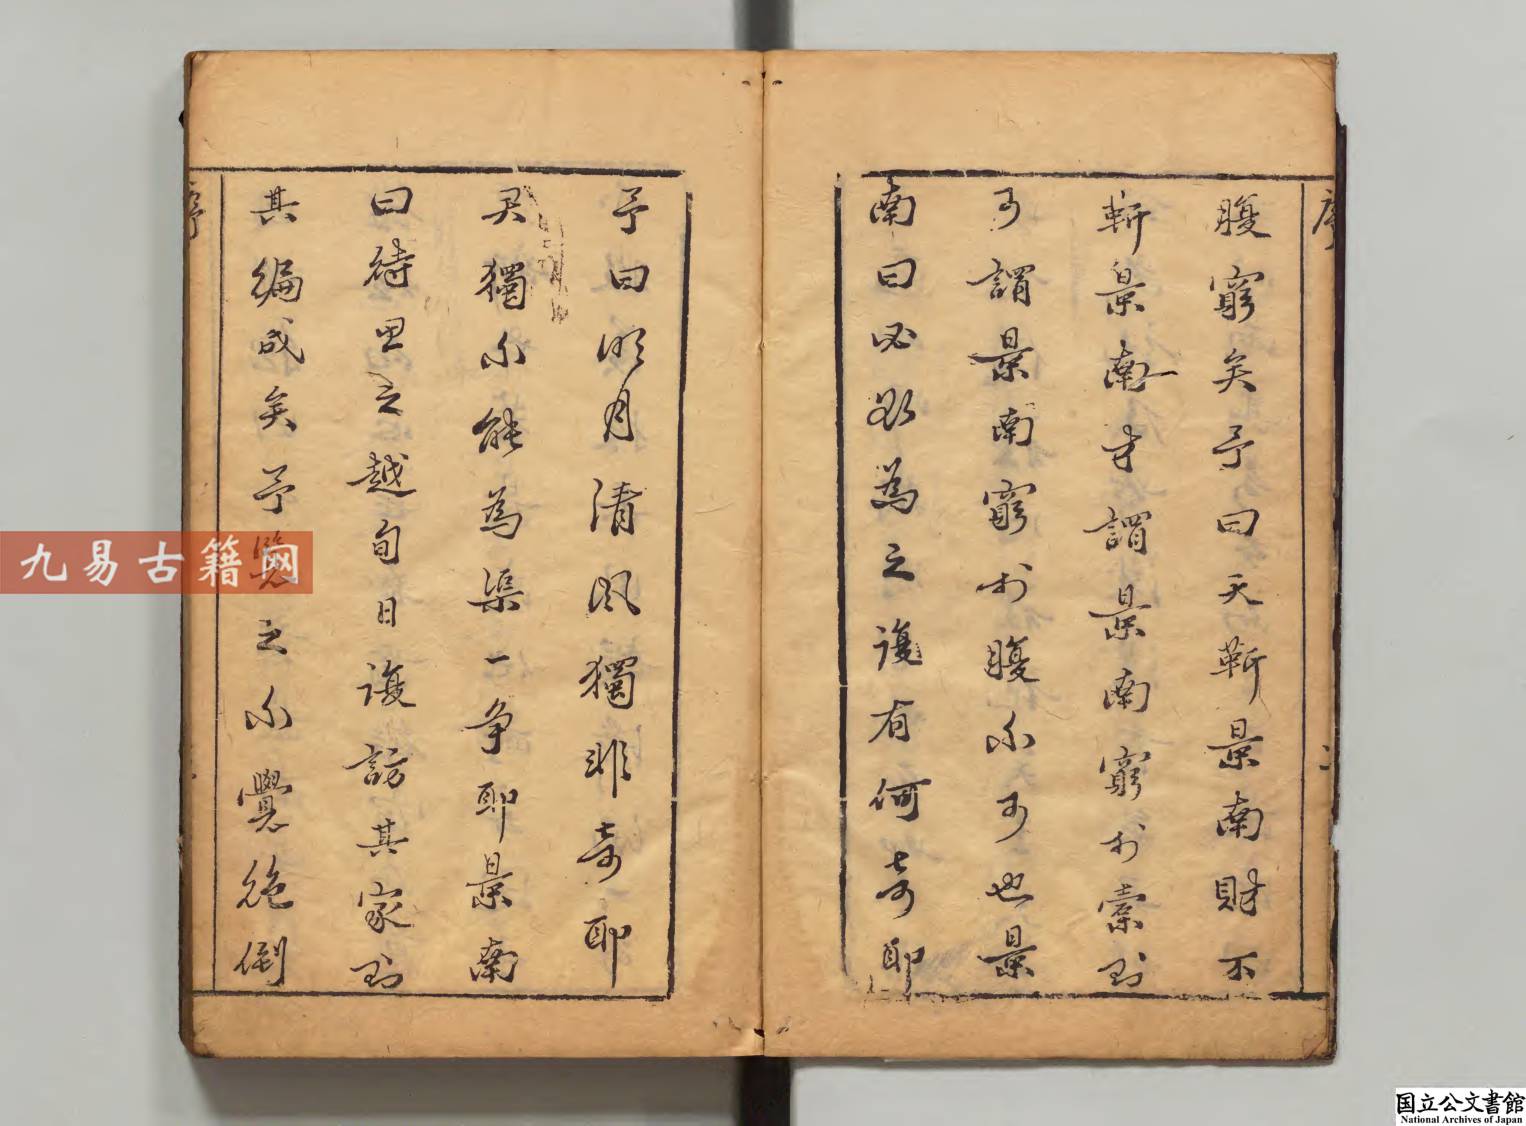 序
二
腹窮矣予曰天靳景南財不
靳景南才謂景南窮於橐則
可謂景南窮於腹不可也景
南曰必欲為之復有何奇耶
予曰明月清風獨非奇耶
君獨不能為渠一爭耶景南
曰待思之越旬日復訪其家則
其編成矣予覽之不覺絕倒
序
九易古籍网
国立公文書館
National Archives of Japan